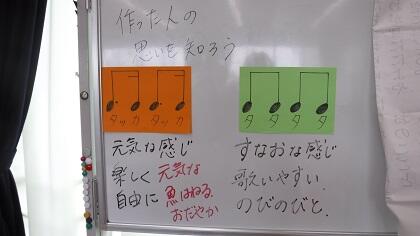 作った人の
思いを知ろう
タッカ タッカ
元気な感じ
楽しく 元気な
自由に 魚はねる
おだやか
タ タ タ タ
すなおな感じ
歌いやすい
のびのびと